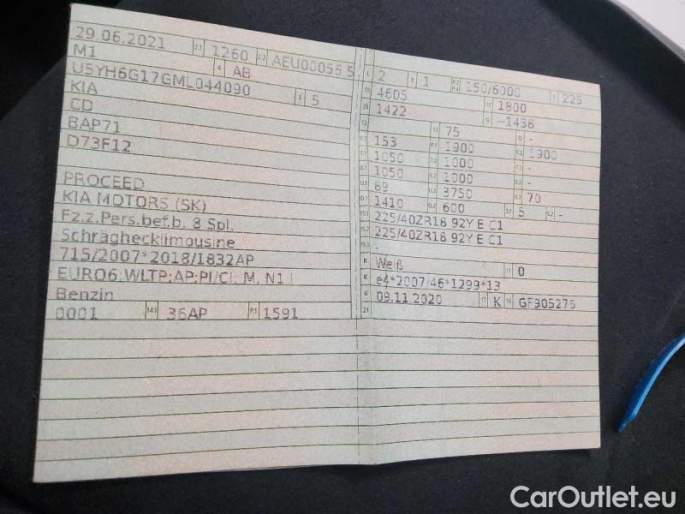 29.06.2021 1260 AEU00055 5
M1 AB
U5YH6G17GML044090 5
KIA
CD
BAP71
D73F12
PROCEED
KIA MOTORS (SK)
Fz.z.Pers.bef.b. 8 Spl.
Schräghecklimousine
715/2007*2018/1832AP
EURO6;WLTP;AP;PI/CI, M, N1 I
Benzin
0001 36AP 1591
2 1 150/6000 225
4605 1800
1422 -1436
75 -
153 1900 1900
1050 1000 -
1050 1000 -
69 3750 70
1410 600 5 -
225/40ZR18 92Y E C1
225/40ZR18 92Y E C1
-
Weiß 0
e4*2007/46*1299*13
09.11.2020 K GF905275
CarOutlet.eu